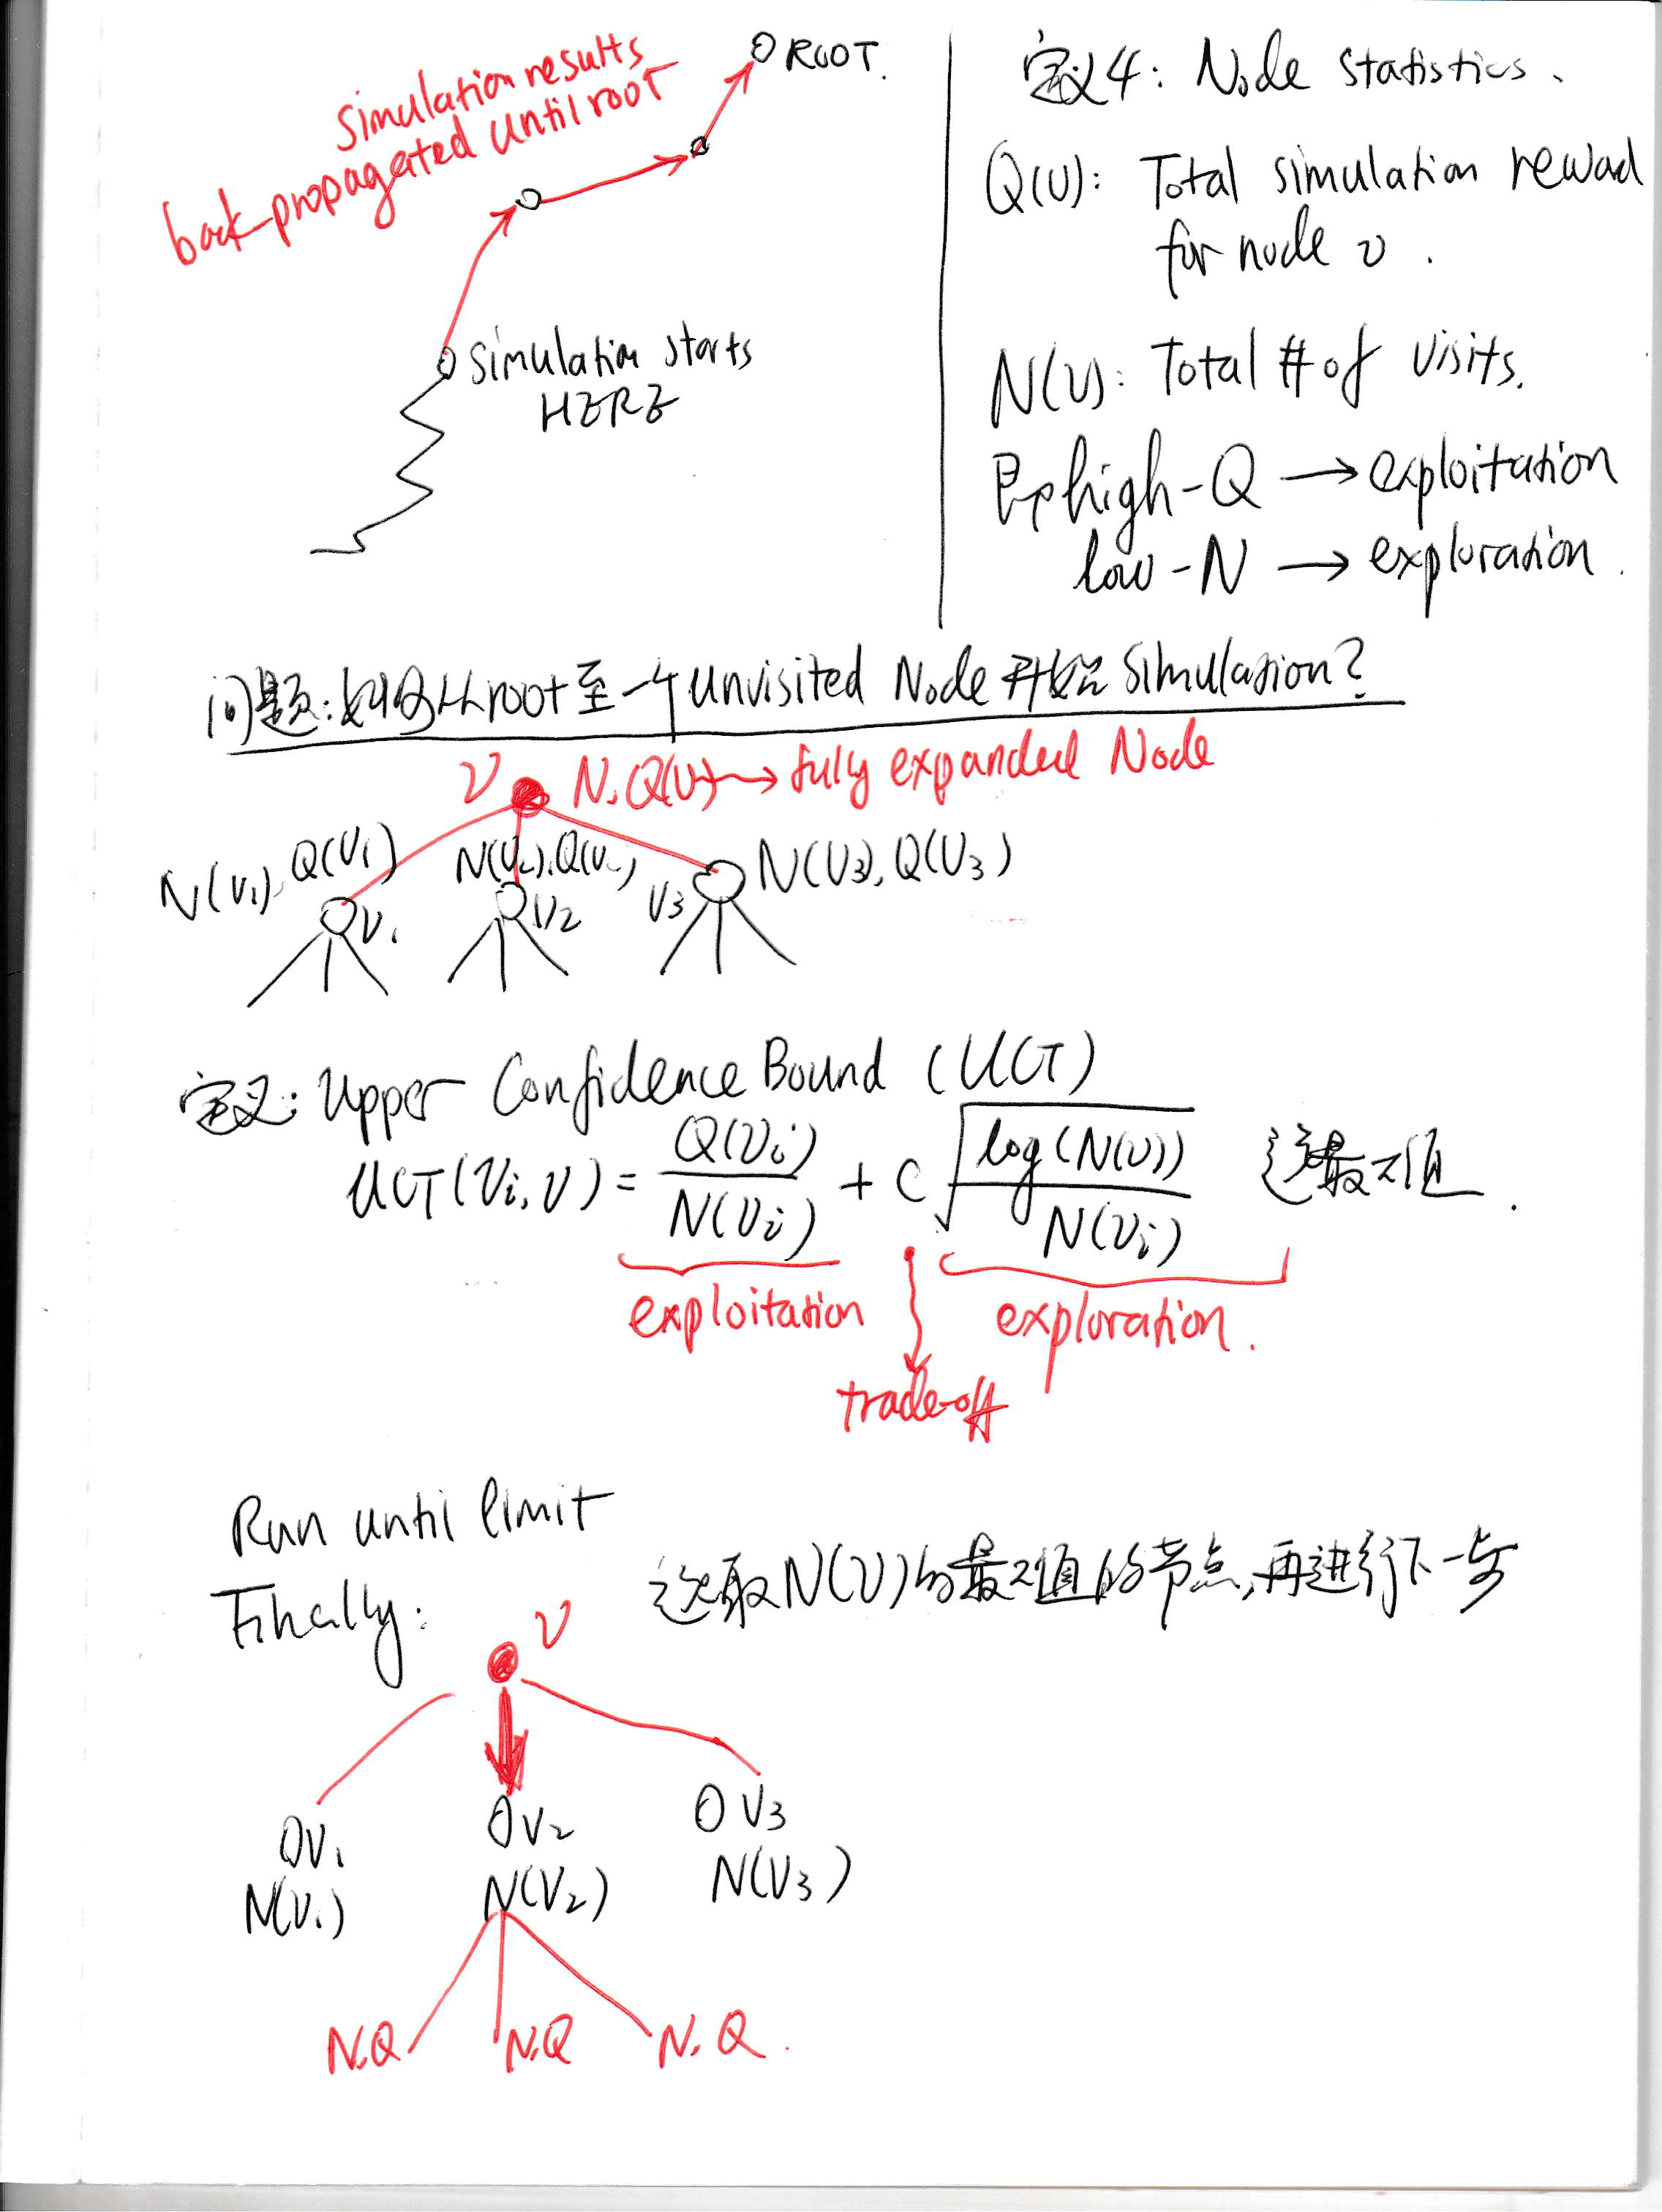 Simulation results
back-propagated until root
ROOT.
Simulation starts
HERE
定义4: Node Statistics.
Q(v): Total simulation reward
for node v.
N(v): Total # of visits.
high-Q → exploitation
low-N → exploration.
问题:如何从root至一个unvisited Node开始Simulation?
v N,Q(v) → fully expanded Node
N(v₁), Q(v₁) N(v₂), Q(v₂) N(v₃), Q(v₃)
v₁ v₂ v₃
定义: Upper Confidence Bound (UCT)
UCT(vᵢ, v) = Q(vᵢ)/N(vᵢ) + c√(log(N(v))/N(vᵢ)) 选最大值.
exploitation exploration.
trade-off
Run until limit
Finally: 选取N(v)的最大值的节点,再进行下一步
v
v₁ v₂ v₃
N(v₁) N(v₂) N(v₃)
N,Q N,Q N,Q.